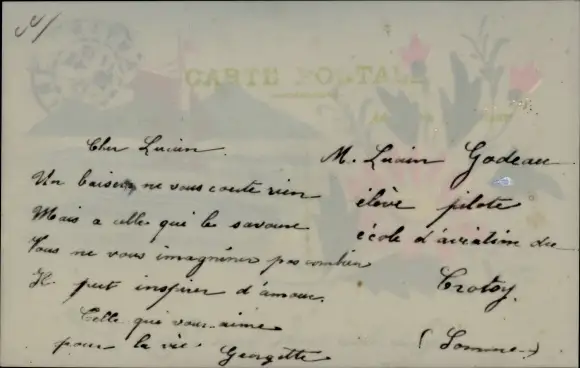 CARTE POSTALE
Cher Lucien.
Un baiser ne vous coute rien
Mais a celle qui le savoure
Vous ne vous imaginer pas combien
Il peut inspirer d'amour.
Celle qui vous aime
pour la vie Georgette
M. Lucien Godeau
élève pilote
école d'aviation du
Crotoy.
(Somme)